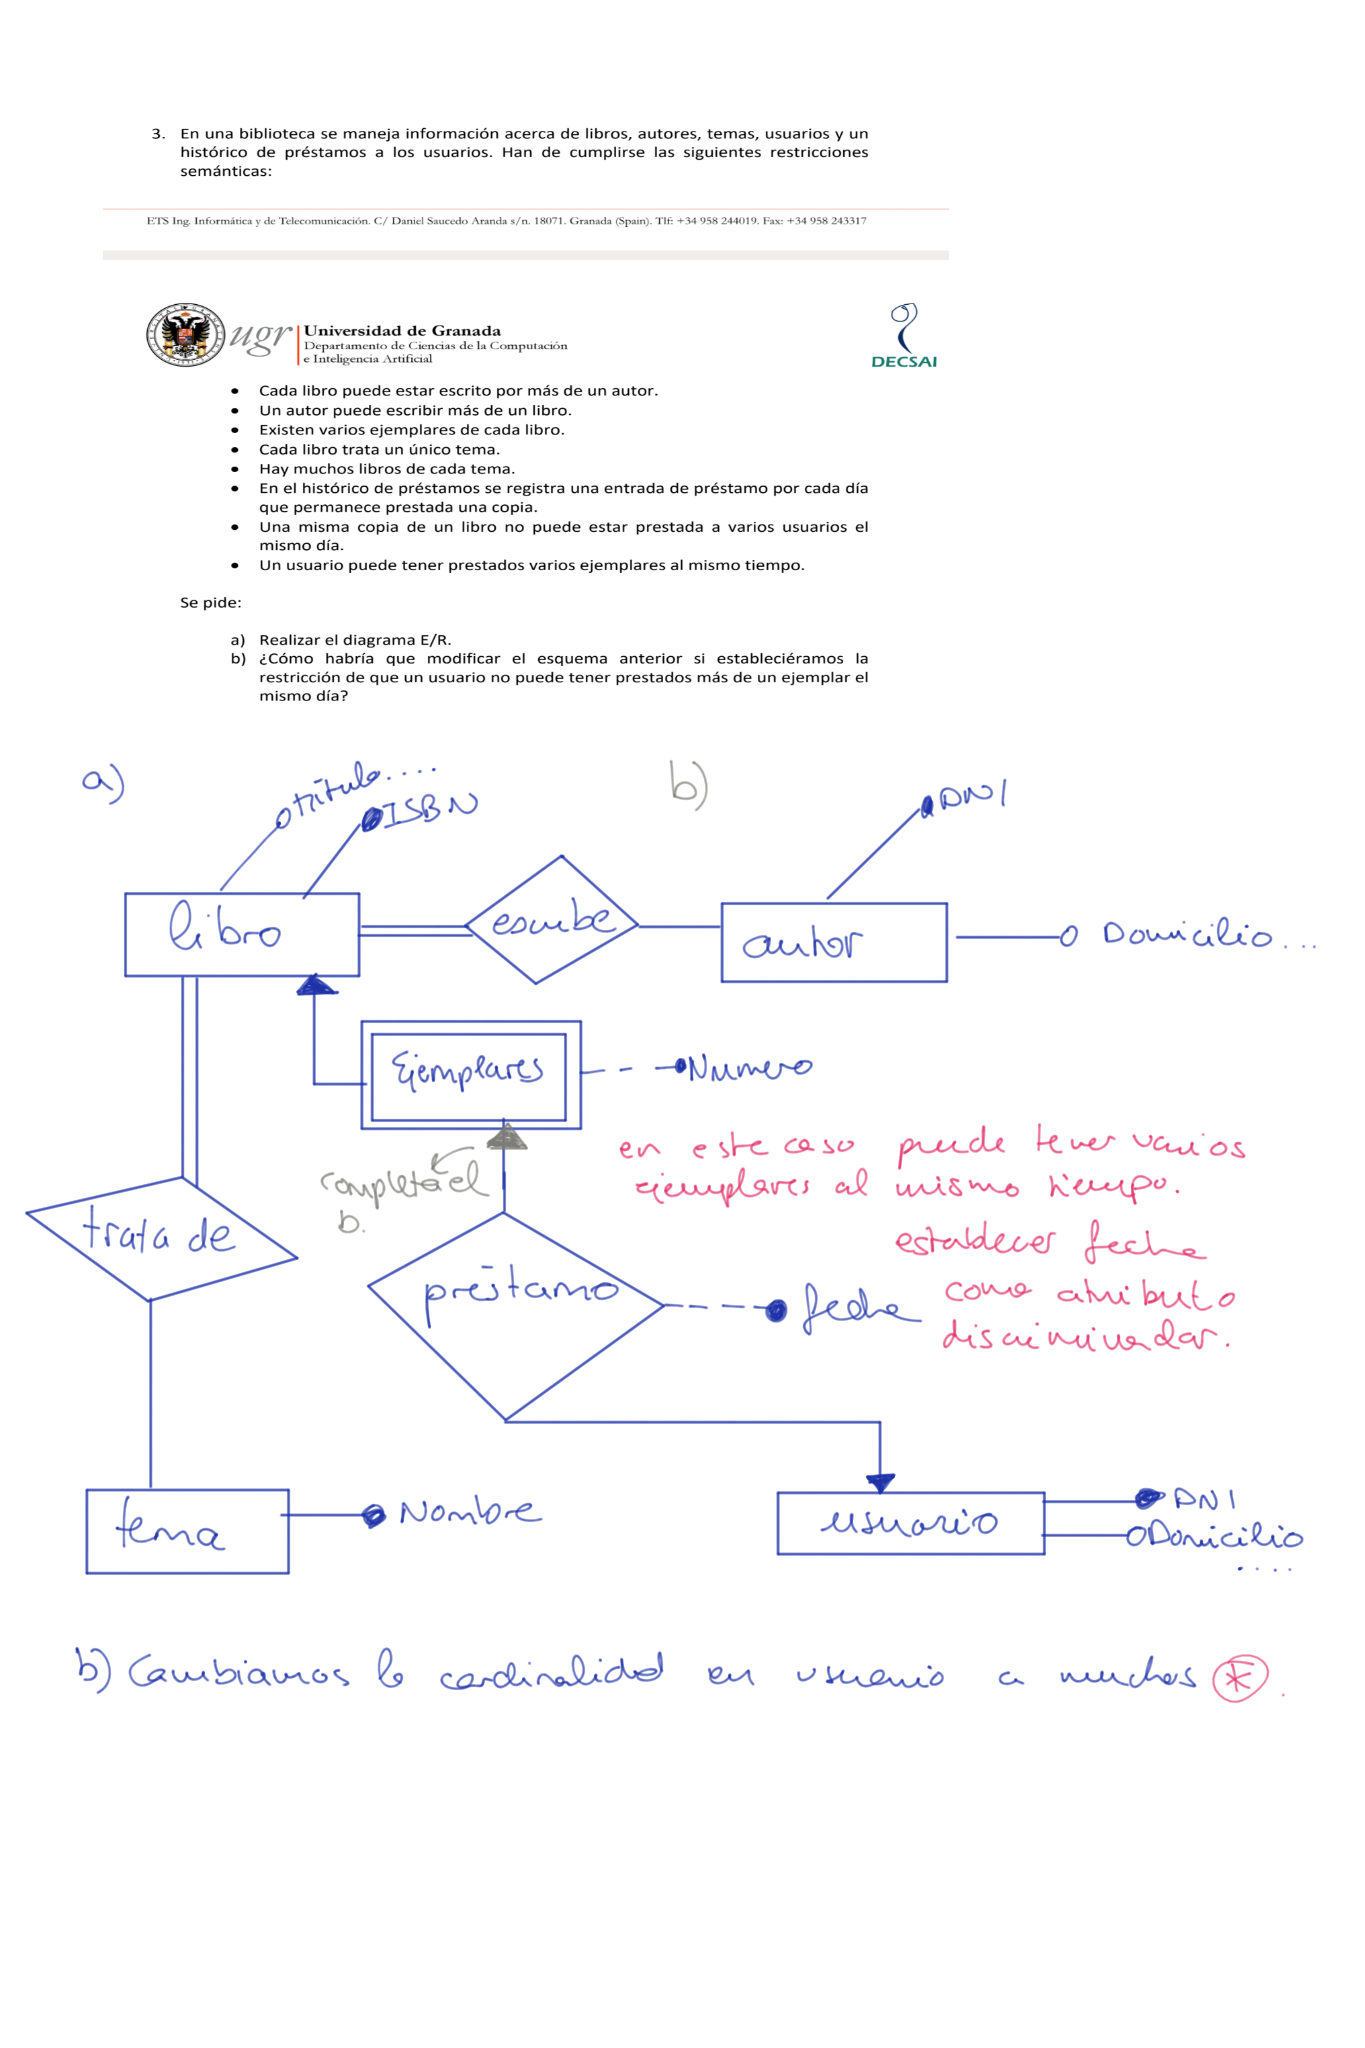 3. En una biblioteca se maneja información acerca de libros, autores, temas, usuarios y un
histórico de préstamos a los usuarios. Han de cumplirse las siguientes restricciones
semánticas:
ETS Ing. Informática y de Telecomunicación. C/ Daniel Saucedo Aranda s/n. 18071. Granada (Spain). Tlf: +34 958 244019. Fax: +34 958 243317
ugr
Universidad de Granada
Departamento de Ciencias de la Computación
e Inteligencia Artificial
DECSAI
• Cada libro puede estar escrito por más de un autor.
• Un autor puede escribir más de un libro.
• Existen varios ejemplares de cada libro.
• Cada libro trata un único tema.
• Hay muchos libros de cada tema.
• En el histórico de préstamos se registra una entrada de préstamo por cada día
que permanece prestada una copia.
• Una misma copia de un libro no puede estar prestada a varios usuarios el
mismo día.
• Un usuario puede tener prestados varios ejemplares al mismo tiempo.
Se pide:
a) Realizar el diagrama E/R.
b) ¿Cómo habría que modificar el esquema anterior si estableciéramos la
restricción de que un usuario no puede tener prestados más de un ejemplar el
mismo día?
a)
título....
ISBN
b)
DNI
libro
escribe
autor
Domicilio...
Ejemplares
Numero
en este caso puede tener varios
ejemplares al mismo tiempo.
completa el
b.
trata de
establecer fecha
como atributo
discriminador.
préstamo
fecha
tema
Nombre
usuario
DNI
Domicilio
....
b) Cambiamos la cardinalidad en usuario a muchos *.